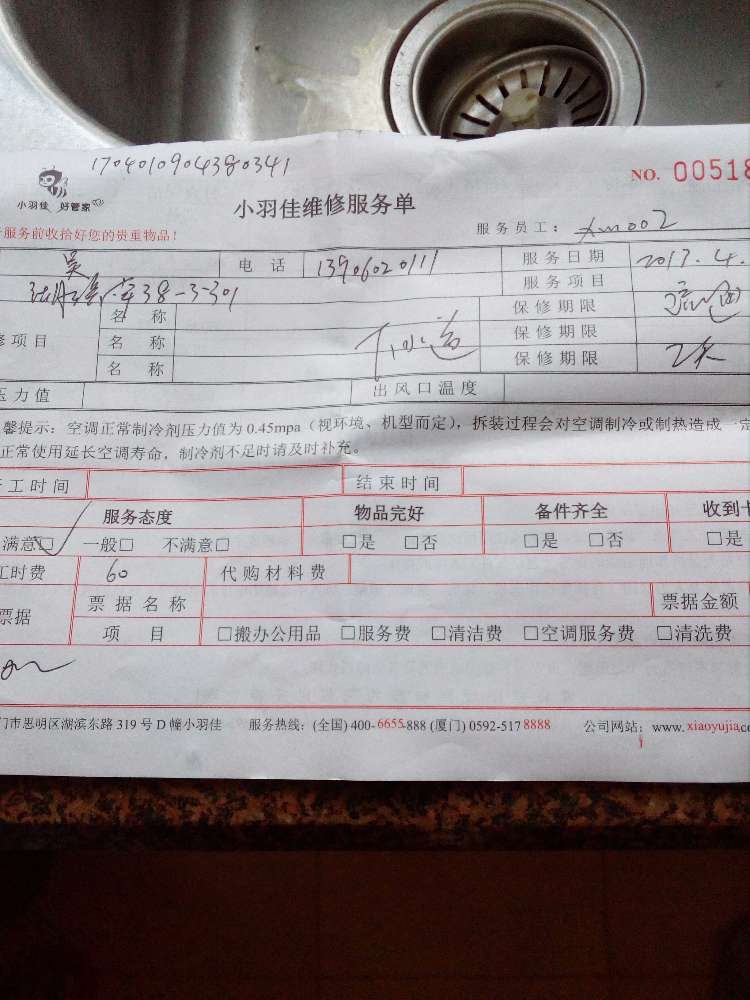 1704010904380341
NO. 00518
小羽佳 好管家
小羽佳维修服务单
服务员工： xm002
服务前收拾好您的贵重物品！
吴 电话 13906020111 服务日期 2017.4.
38-3-301 服务项目
名称 保修期限
修项目 名称 下水道 保修期限
名称 保修期限 2天
压力值 出风口温度
馨提示：空调正常制冷剂压力值为 0.45mpa（视环境、机型而定），拆装过程会对空调制冷或制热造成一定
正常使用延长空调寿命，制冷剂不足时请及时补充。
工时间 结束时间
服务态度 物品完好 备件齐全 收到
满意□ 一般□ 不满意□ □是 □否 □是 □否 □是
工时费 60 代购材料费
票据 票据名称 票据金额
项目 □搬办公用品 □服务费 □清洁费 □空调服务费 □清洗费
门市思明区湖滨东路 319 号 D 幢小羽佳 服务热线：(全国) 400-6655-888 (厦门) 0592-517 8888 公司网站：www.xiaoyujia.co